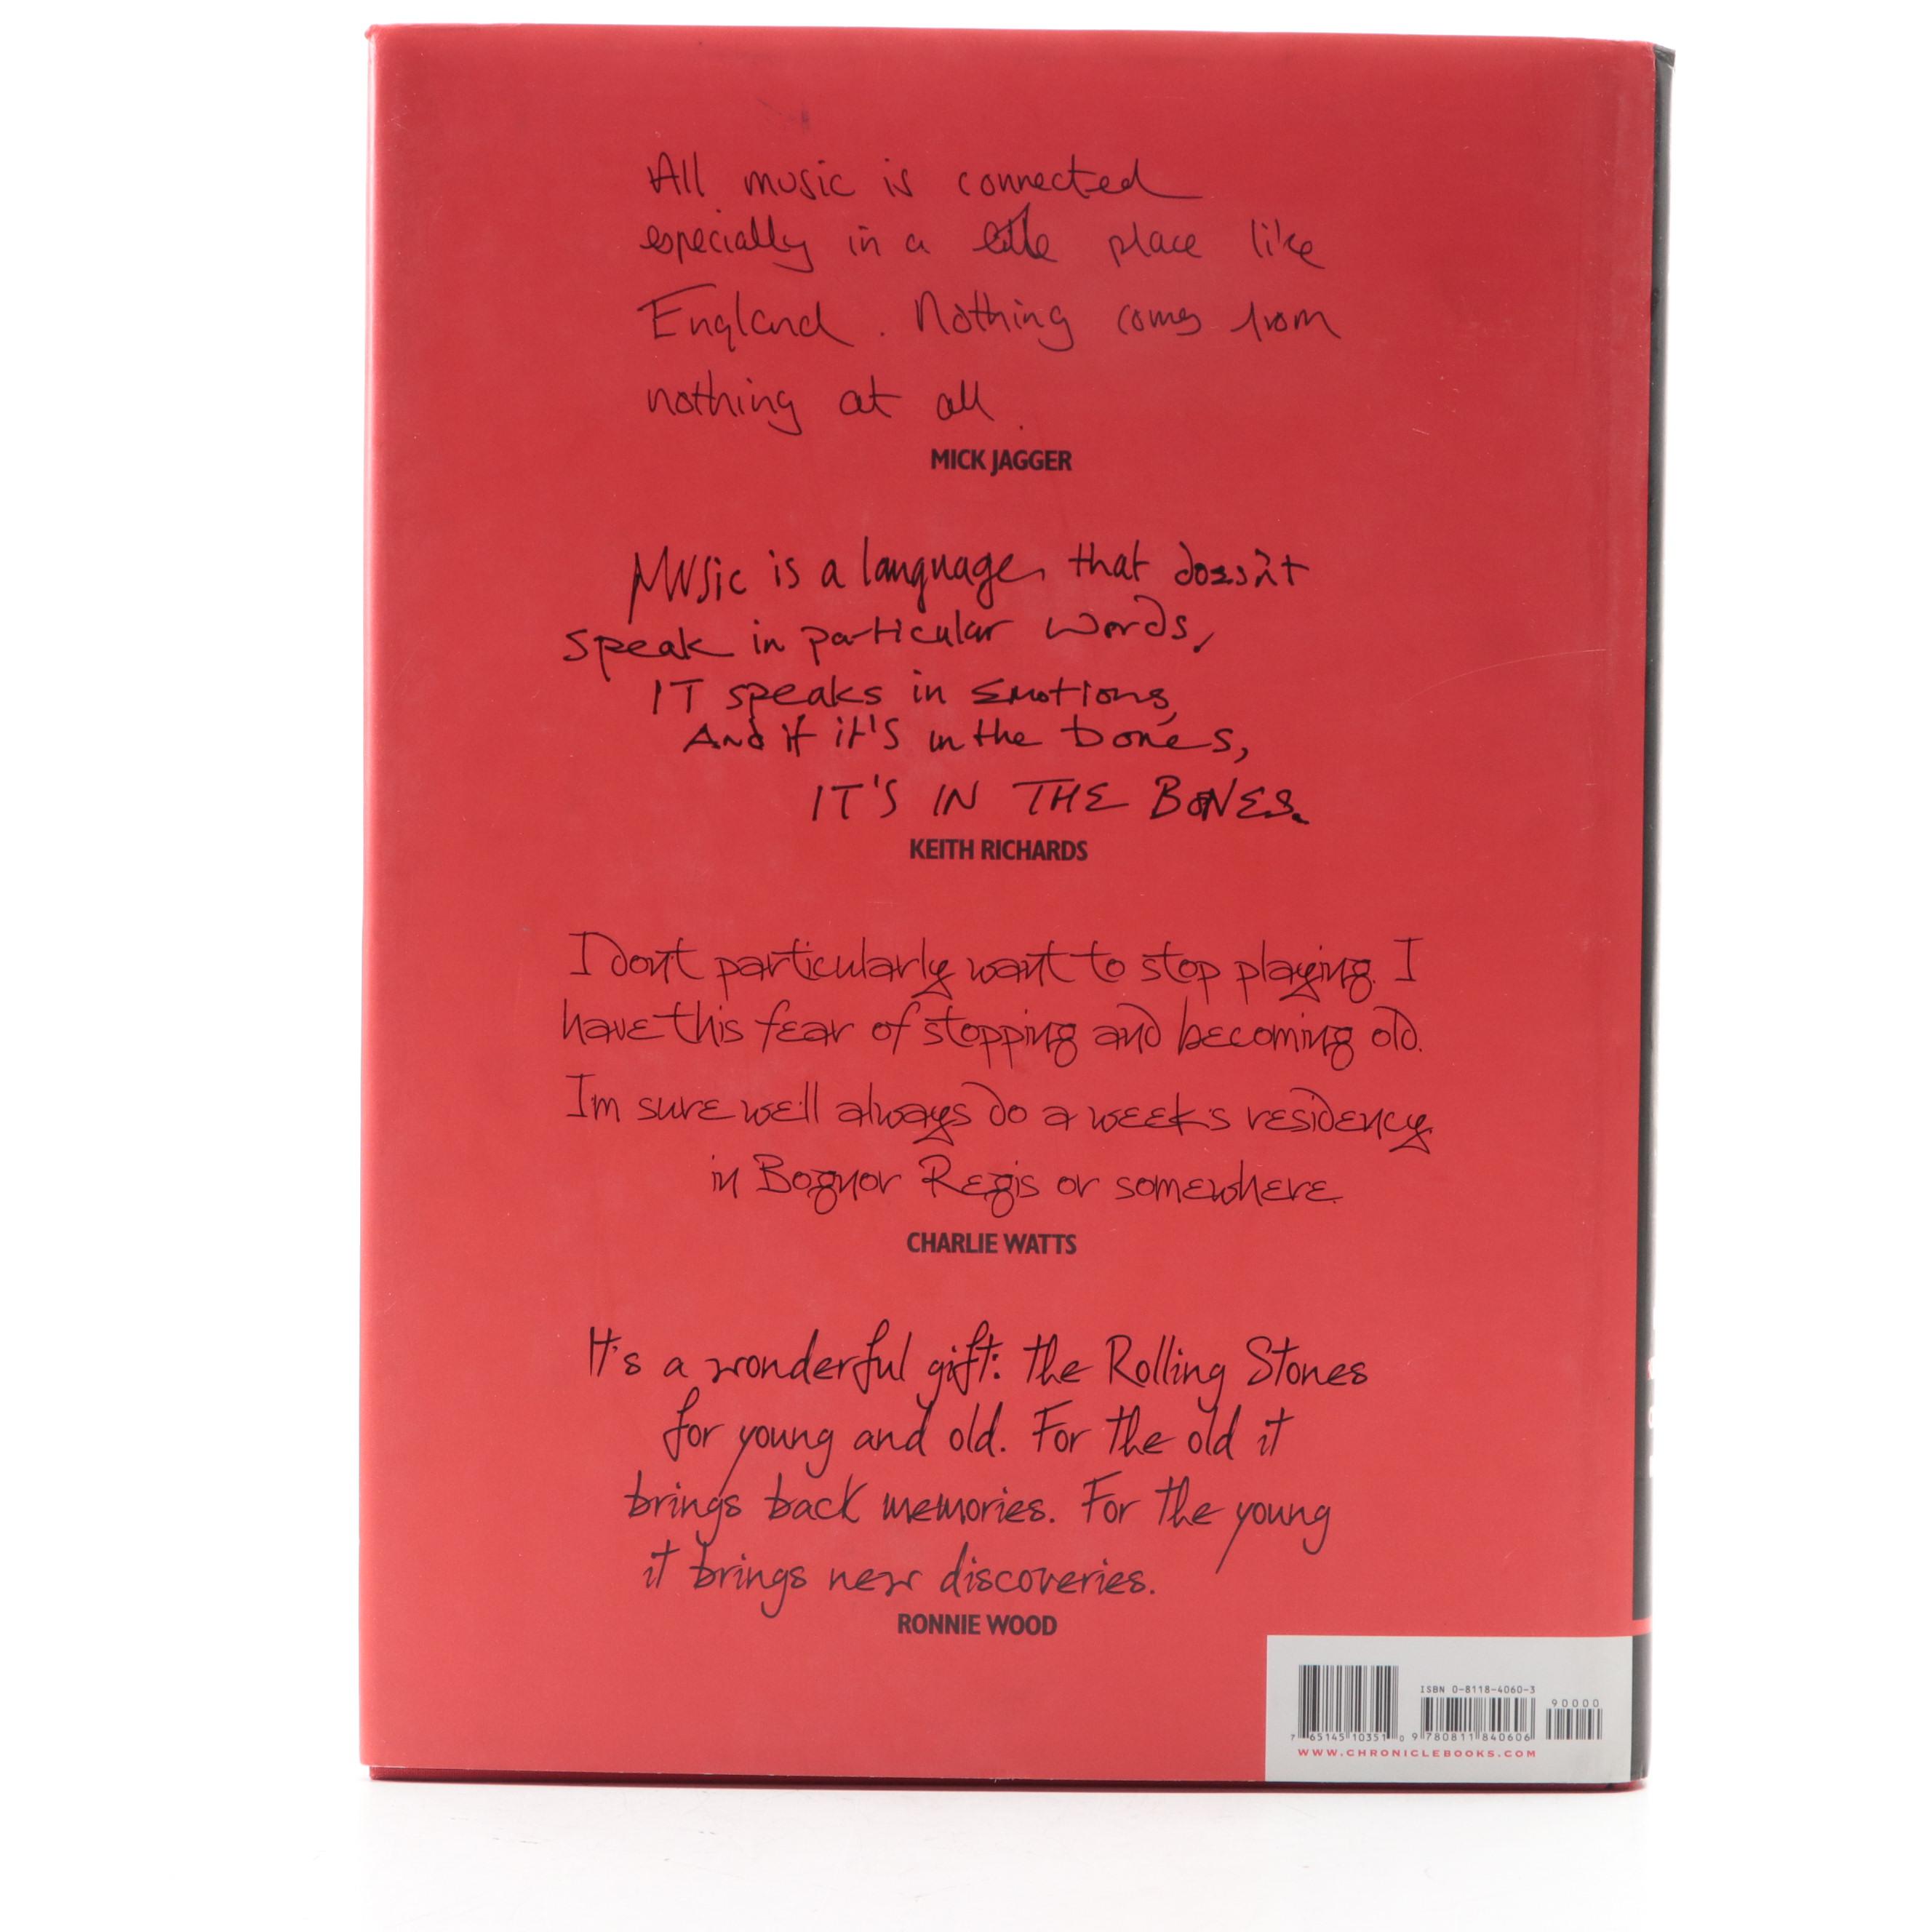 All music is connected
especially in a little place like
England. Nothing comes from
nothing at all.
MICK JAGGER
Music is a language, that doesn't
speak in particular words,
IT speaks in Emotions,
And if it's in the bones,
IT'S IN THE BONES.
KEITH RICHARDS
I don't particularly want to stop playing. I
have this fear of stopping and becoming old.
I'm sure we'll always do a week's residency
in Bognor Regis or somewhere.
CHARLIE WATTS
It's a wonderful gift: the Rolling Stones
for young and old. For the old it
brings back memories. For the young
it brings new discoveries.
RONNIE WOOD
ISBN 0-8118-4060-3
90000
7 65145 10351 0 9 780811 840606
WWW.CHRONICLEBOOKS.COM